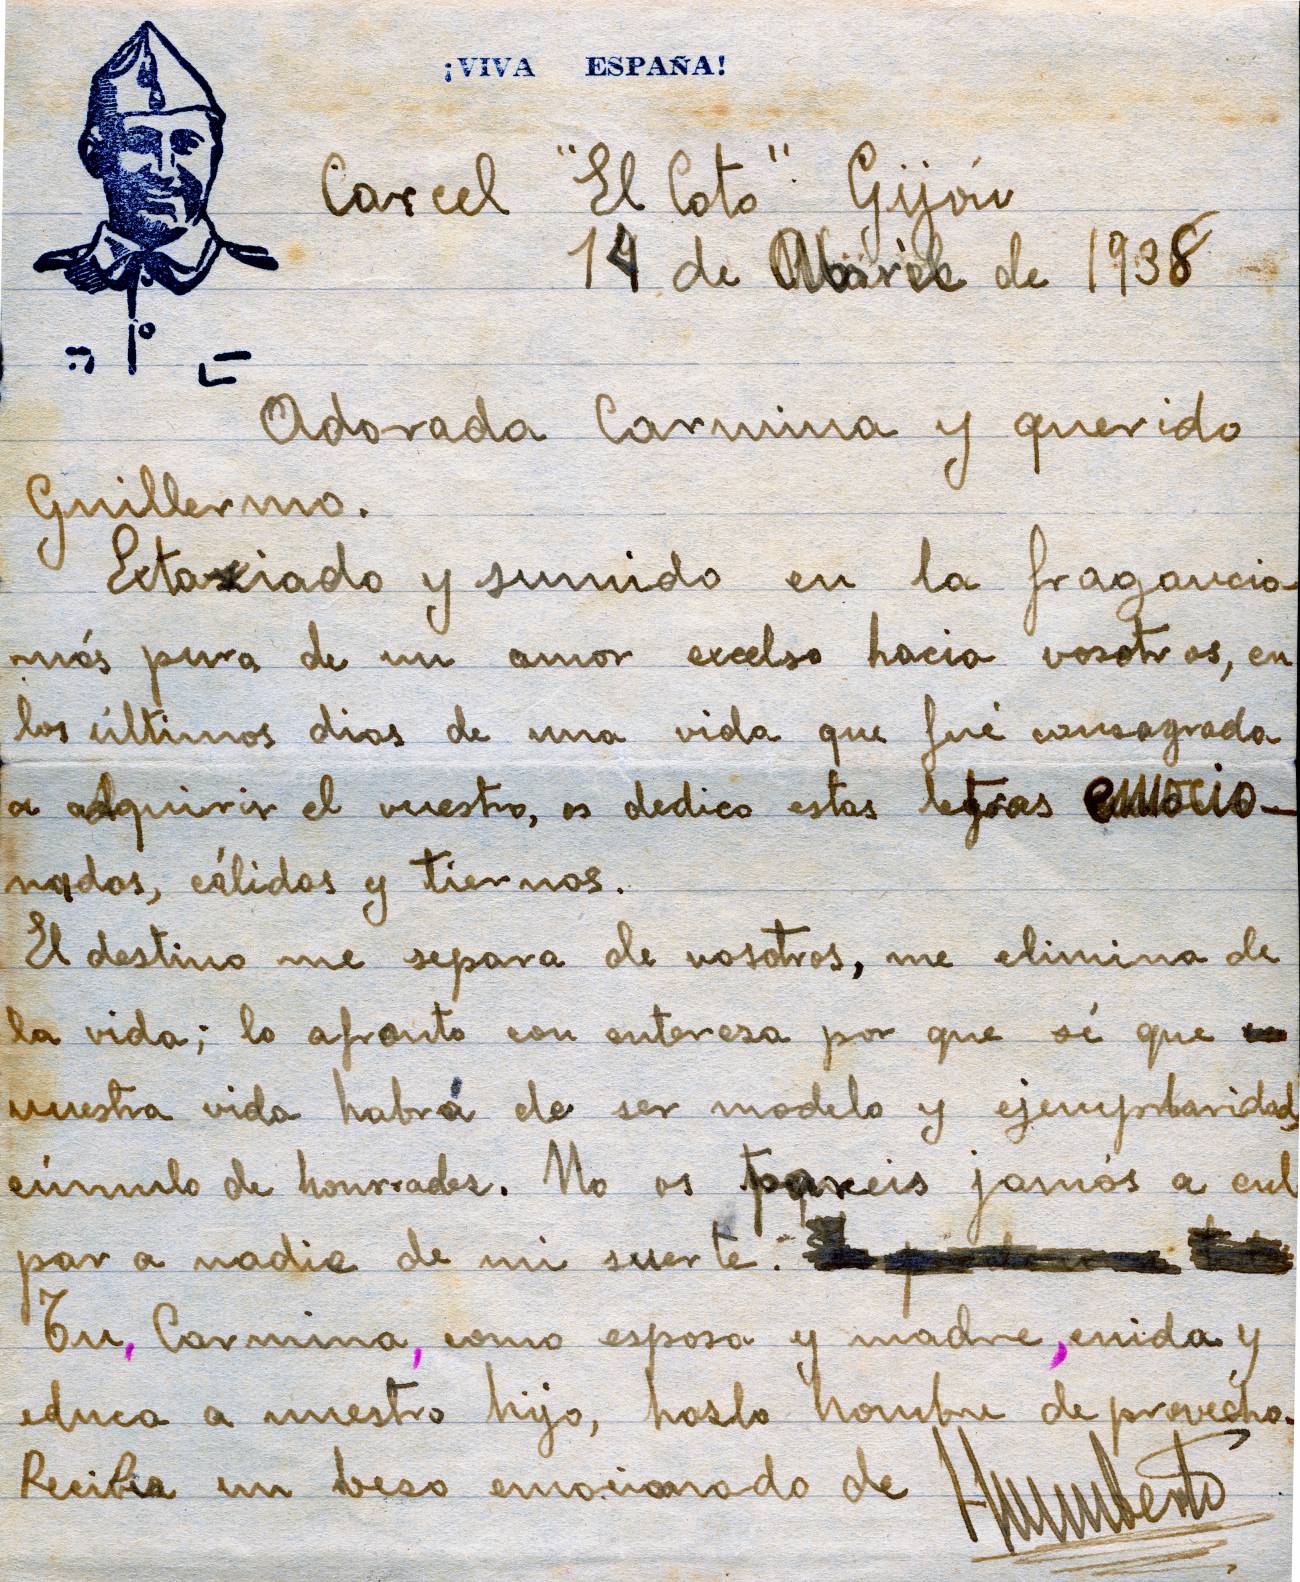 ¡VIVA ESPAÑA!
Carcel "El Coto" Gijón
14 de de 1938
Adorada Carmina y querido
Guillermo.
Extaxiado y sumido en la fragancia
más pura de un amor excelso hacia vosotros, en
los últimos dias de una vida que fué consagrada
a adquirir el vuestro, os dedico estas letras emocio-
nadas, cálidas y tiernas.
El destino me separa de vosotros, me elimina de
la vida; lo afronto con entereza por que sé que
vuestra vida habrá de ser modelo y ejemplaridad,
cúmulo de honrradez. No os pareis jamás a cul
par a nadie de mi suerte.
Tu, Carmina, como esposa y madre, cuida y
educa a nuestro hijo, hazlo hombre de provécho.
Recibe un beso emocionado de Humberto